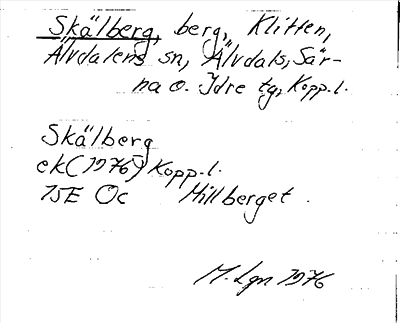 Skälberg, berg, Klitten,
Älvdalens sn, Älvdals, Sär-
na o. Idre tg, Kopp.l.
Skälberg
ek (1976) Kopp.l.
15E Oc Millberget.
M. Lgn 1976